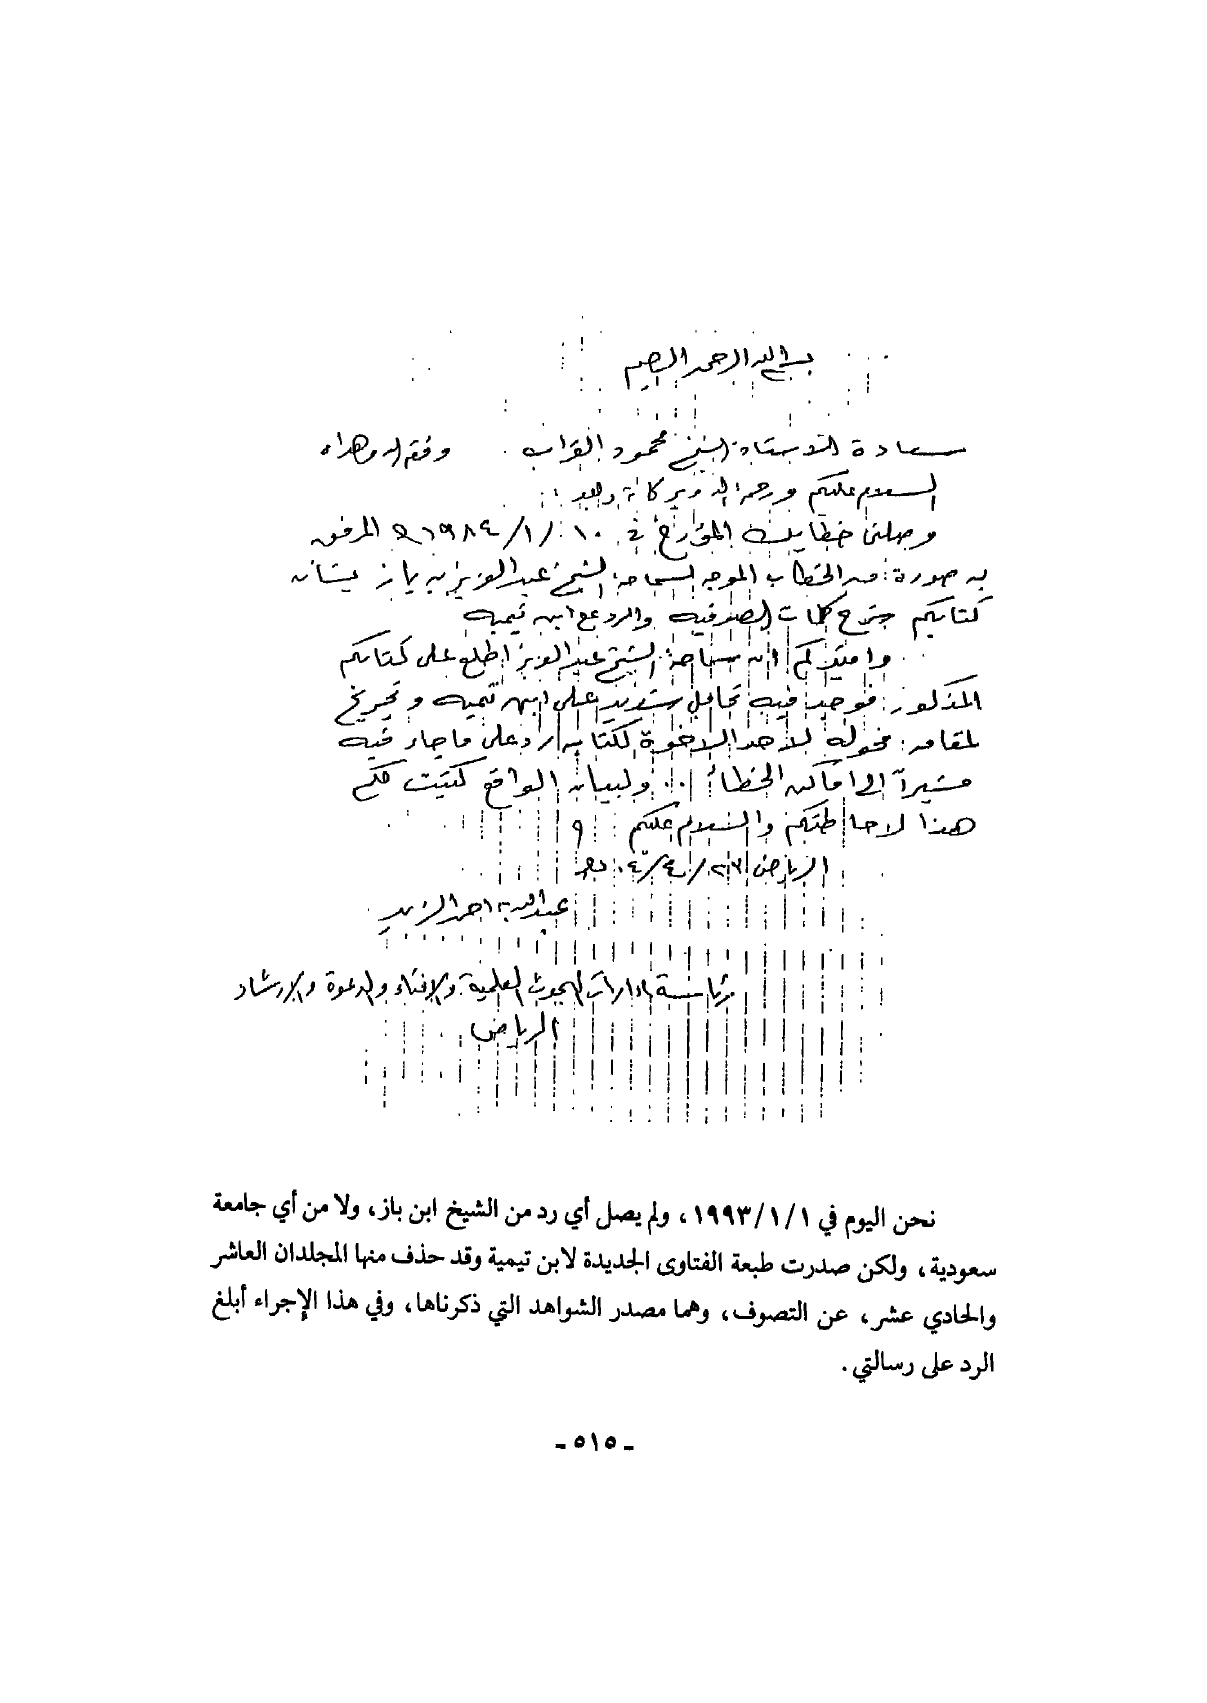 بسم الله الرحمن الرحيم
سعادة الاستاذ الشيخ محمود الغراب وفقه الله وهداه
السلام عليكم ورحمة الله وبركاته وبعد :
وصلني خطابك المؤرخ في ١٠/١/١٩٨٤ المرفق
به صورة من الخطاب الموجه لسماحة الشيخ عبدالعزيز بن باز بشأن
كتابكم شرح كلمات الصوفيه والرد على ابن تيميه
وافيدكم ان سماحة الشيخ عبدالعزيز اطلع على كتابكم
المذكور فوجد فيه تحامل شديد على ابن تيميه وتجريح
لمقامه فحوله لأحد الاخوة لكتابة رد على ما جاء فيه
مشيراً الى اماكن الخطأ .. ولبيان الواقع كتبت لكم
هذا لاحاطتكم والسلام عليكم
الرياض
عبدالله بن احمد الزيد
رئاسة ادارات البحوث العلمية والافتاء والدعوة والارشاد
الرياض
نحن اليوم في ١/١/١٩٩٣، ولم يصل أي رد من الشيخ ابن باز، ولا من أي جامعة
سعودية، ولكن صدرت طبعة الفتاوى الجديدة لابن تيمية وقد حذف منها المجلدان العاشر
والحادي عشر، عن التصوف، وهما مصدر الشواهد التي ذكرناها، وفي هذا الإجراء أبلغ
الرد على رسالتي.
- ٥١٥ -